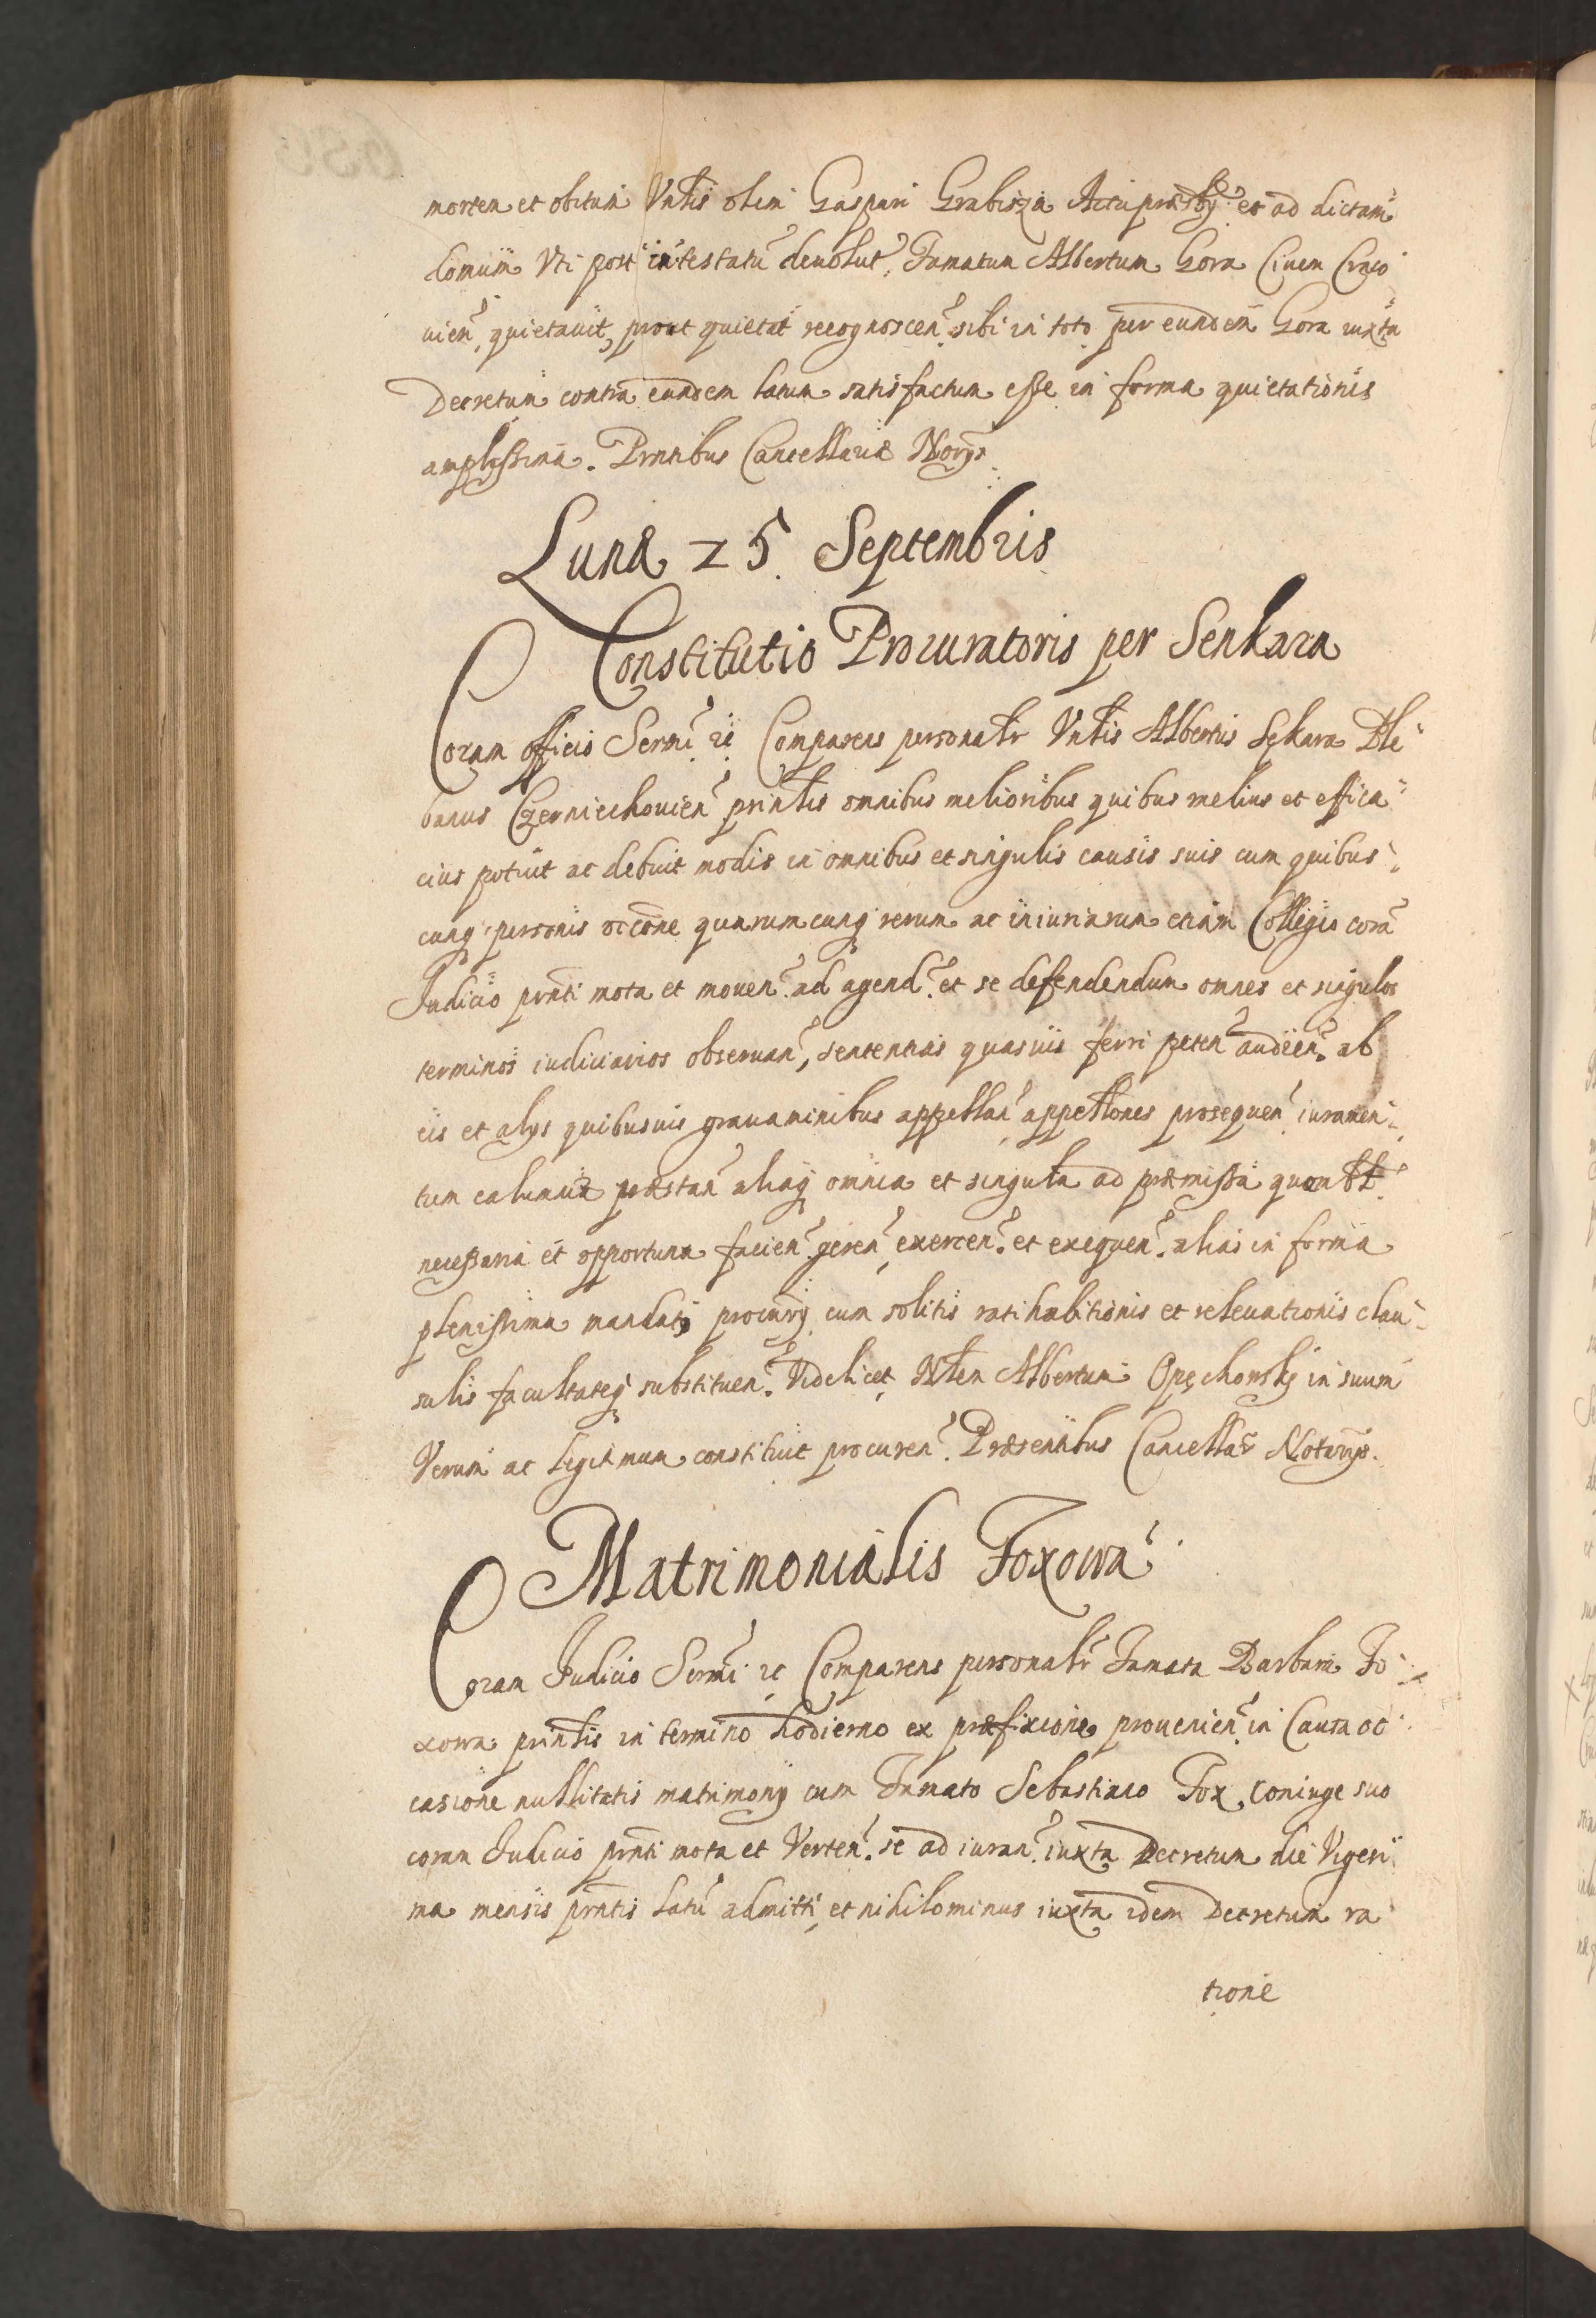 mortem et obitum Vnlis olim Gaspari Grabisza Actu presbÿ: et ad dictam
domum Vti post intestatũ deuolut, Famatum Albertum Gora Ciuem Craco
uien, quietauit, prout quietat recognoscen. sibi in toto per eundem Gora iuxta
Decretum contra eundem latum satisfactum esse in forma quietationis
amplissima. Prntibus Cancellariæ Norijs
Lunæ 25 Septembris
Constitutio Procuratoris per Senkara
Coram officio Sermi: &c Comparens personalr Vnlis Albertus Sękara Ple
banus Czerniechouien prinlis omnibus melioribus quibus melius et effica
cius potuit ac debuit modis in omnibus et singulis causis suis cum quibus
cunq personis occone quarumcunq rerum ac iniuriarum etiam Collegio corã
Judicio prnti mota et mouen. ad agend. et se defendendum omnes et singulos
terminos iudiciarios obseruan, sententias quasuis ferri peten audien. ab
eis et alijs quibusuis grauaminibus appellan appellones prosequen iuramen
tum calumniæ præstan aliaq omnia et singula ad præmissa quomlt
necessaria et opportuna facien. geren, exercen. et exequen. alias in forma
plenissima mandati procurrÿ cum solitis ratihabitionis et releuationis clau
sulis facultateq substituen. Videlicet Nlem Albertum Opęchowskj in suum
Verum ac legitimum constituit procuren. Præsentibus Cancellar Notarijs.
Matrimonialis Foxowa
Coram Judicio Sermi &c Comparens personalr Famata Barbara Fo
xowa prinlis in termino hodierno ex præfixione prouenien. in Causa oc
casione nullitatis matrimonij cum Famato Sebastiano Fox Coniuge suo
coram Judicio prnti mota et Verten. se ad iuran. iuxta Decretum die Vigesi
ma mensis prntis latũ admitti, et nihilominus iuxta idem Decretum ra
tione